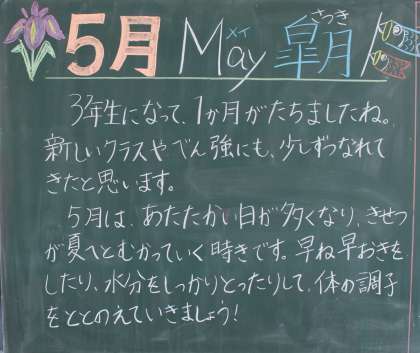 5月 May メイ 皐月 さつき
3年生になって、1か月がたちましたね。
新しいクラスやべん強にも、少しずつなれて
きたと思います。
5月は、あたたかい日が多くなり、きせつ
が夏へとむかっていく時きです。早ね早おきを
したり、水分をしっかりとったりして、体の調子
をととのえていきましょう!